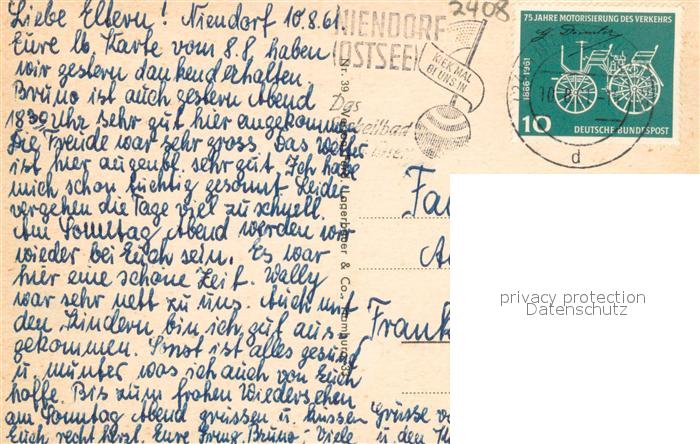 Liebe Eltern! Niendorf 10.8.61.
Eure lb. Karte vom 8.8 haben
wir gestern dankend erhalten.
Bruno ist auch gestern Abend
18³⁹ Uhr sehr gut hier angekommen.
Die Freude war sehr gross. Das Wetter
ist hier augenbl. sehr gut. Ich habe
mich schon tüchtig gesonnt. Leider
vergehen die Tage viel zu schnell.
Am Sonntag Abend werden wir
wieder bei Euch sein. Es war
hier eine schöne Zeit. Wally
war sehr nett zu uns. Auch mit
den Kindern bin ich gut aus-
gekommen. Sonst ist alles gesund
u. munter was ich auch von Euch
hoffe. Bis zum frohen Wiedersehen
am Sonntag Abend grüssen u. küssen
Euch recht herzl. Eure Bruno, Viele
Grüsse
u. den
2408
NIENDORF
(OSTSEE)
KIEK MAL
BI UNS IN
Das
75 JAHRE MOTORISIERUNG DES VERKEHRS
G. Daimler
1886-1961
10 DEUTSCHE BUNDESPOST
d
Nr. 39
& Co., Hamburg 33
Frank
privacy protection
Datenschutz